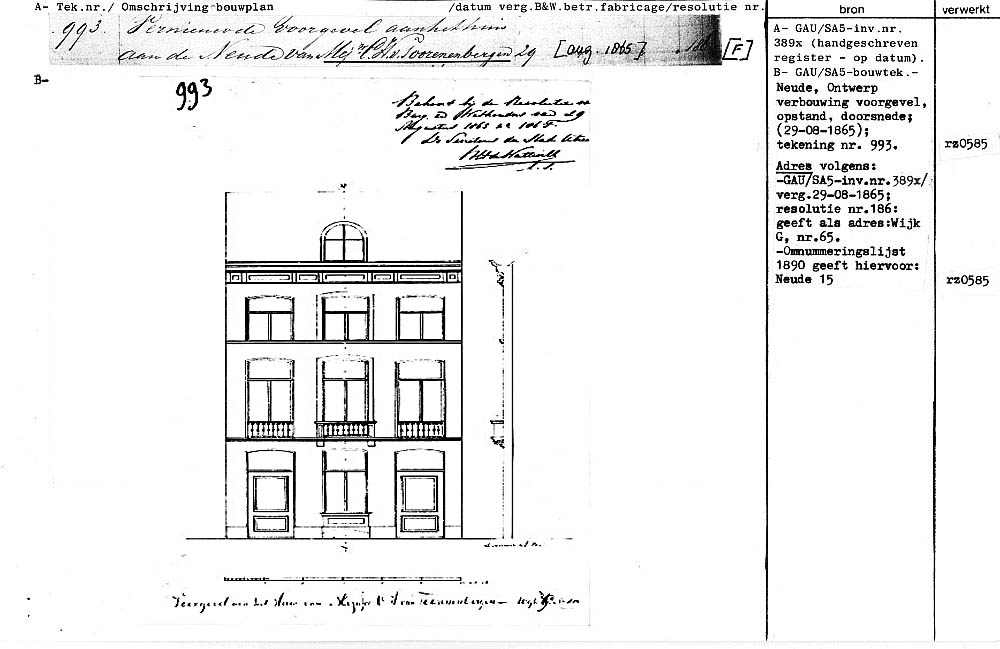 A- Tek.nr./ Omschrijving bouwplan /datum verg.B&W.betr.fabricage/resolutie nr.
993. Vernieuwde Voorgevel aan het huis
aan de Neude van Mej. 29 [aug. 1865] [F]
B-
993
Behoort bij de Resolutie van
Burg. en Wethouders van 29
Augustus 1865 no 186 F.
De Secretaris der Stad Utrecht
Voorgevel van het Huis van
bron
A- GAU/SA5-inv.nr.
389x (handgeschreven
register - op datum).
B- GAU/SA5-bouwtek.-
Neude, Ontwerp
verbouwing voorgevel,
opstand, doorsnede;
(29-08-1865);
tekening nr. 993.
Adres volgens:
-GAU/SA5-inv.nr.389x/
verg.29-08-1865;
resolutie nr.186:
geeft als adres:Wijk
G, nr.65.
-Omnummeringslijst
1890 geeft hiervoor:
Neude 15
verwerkt
rz0585
rz0585